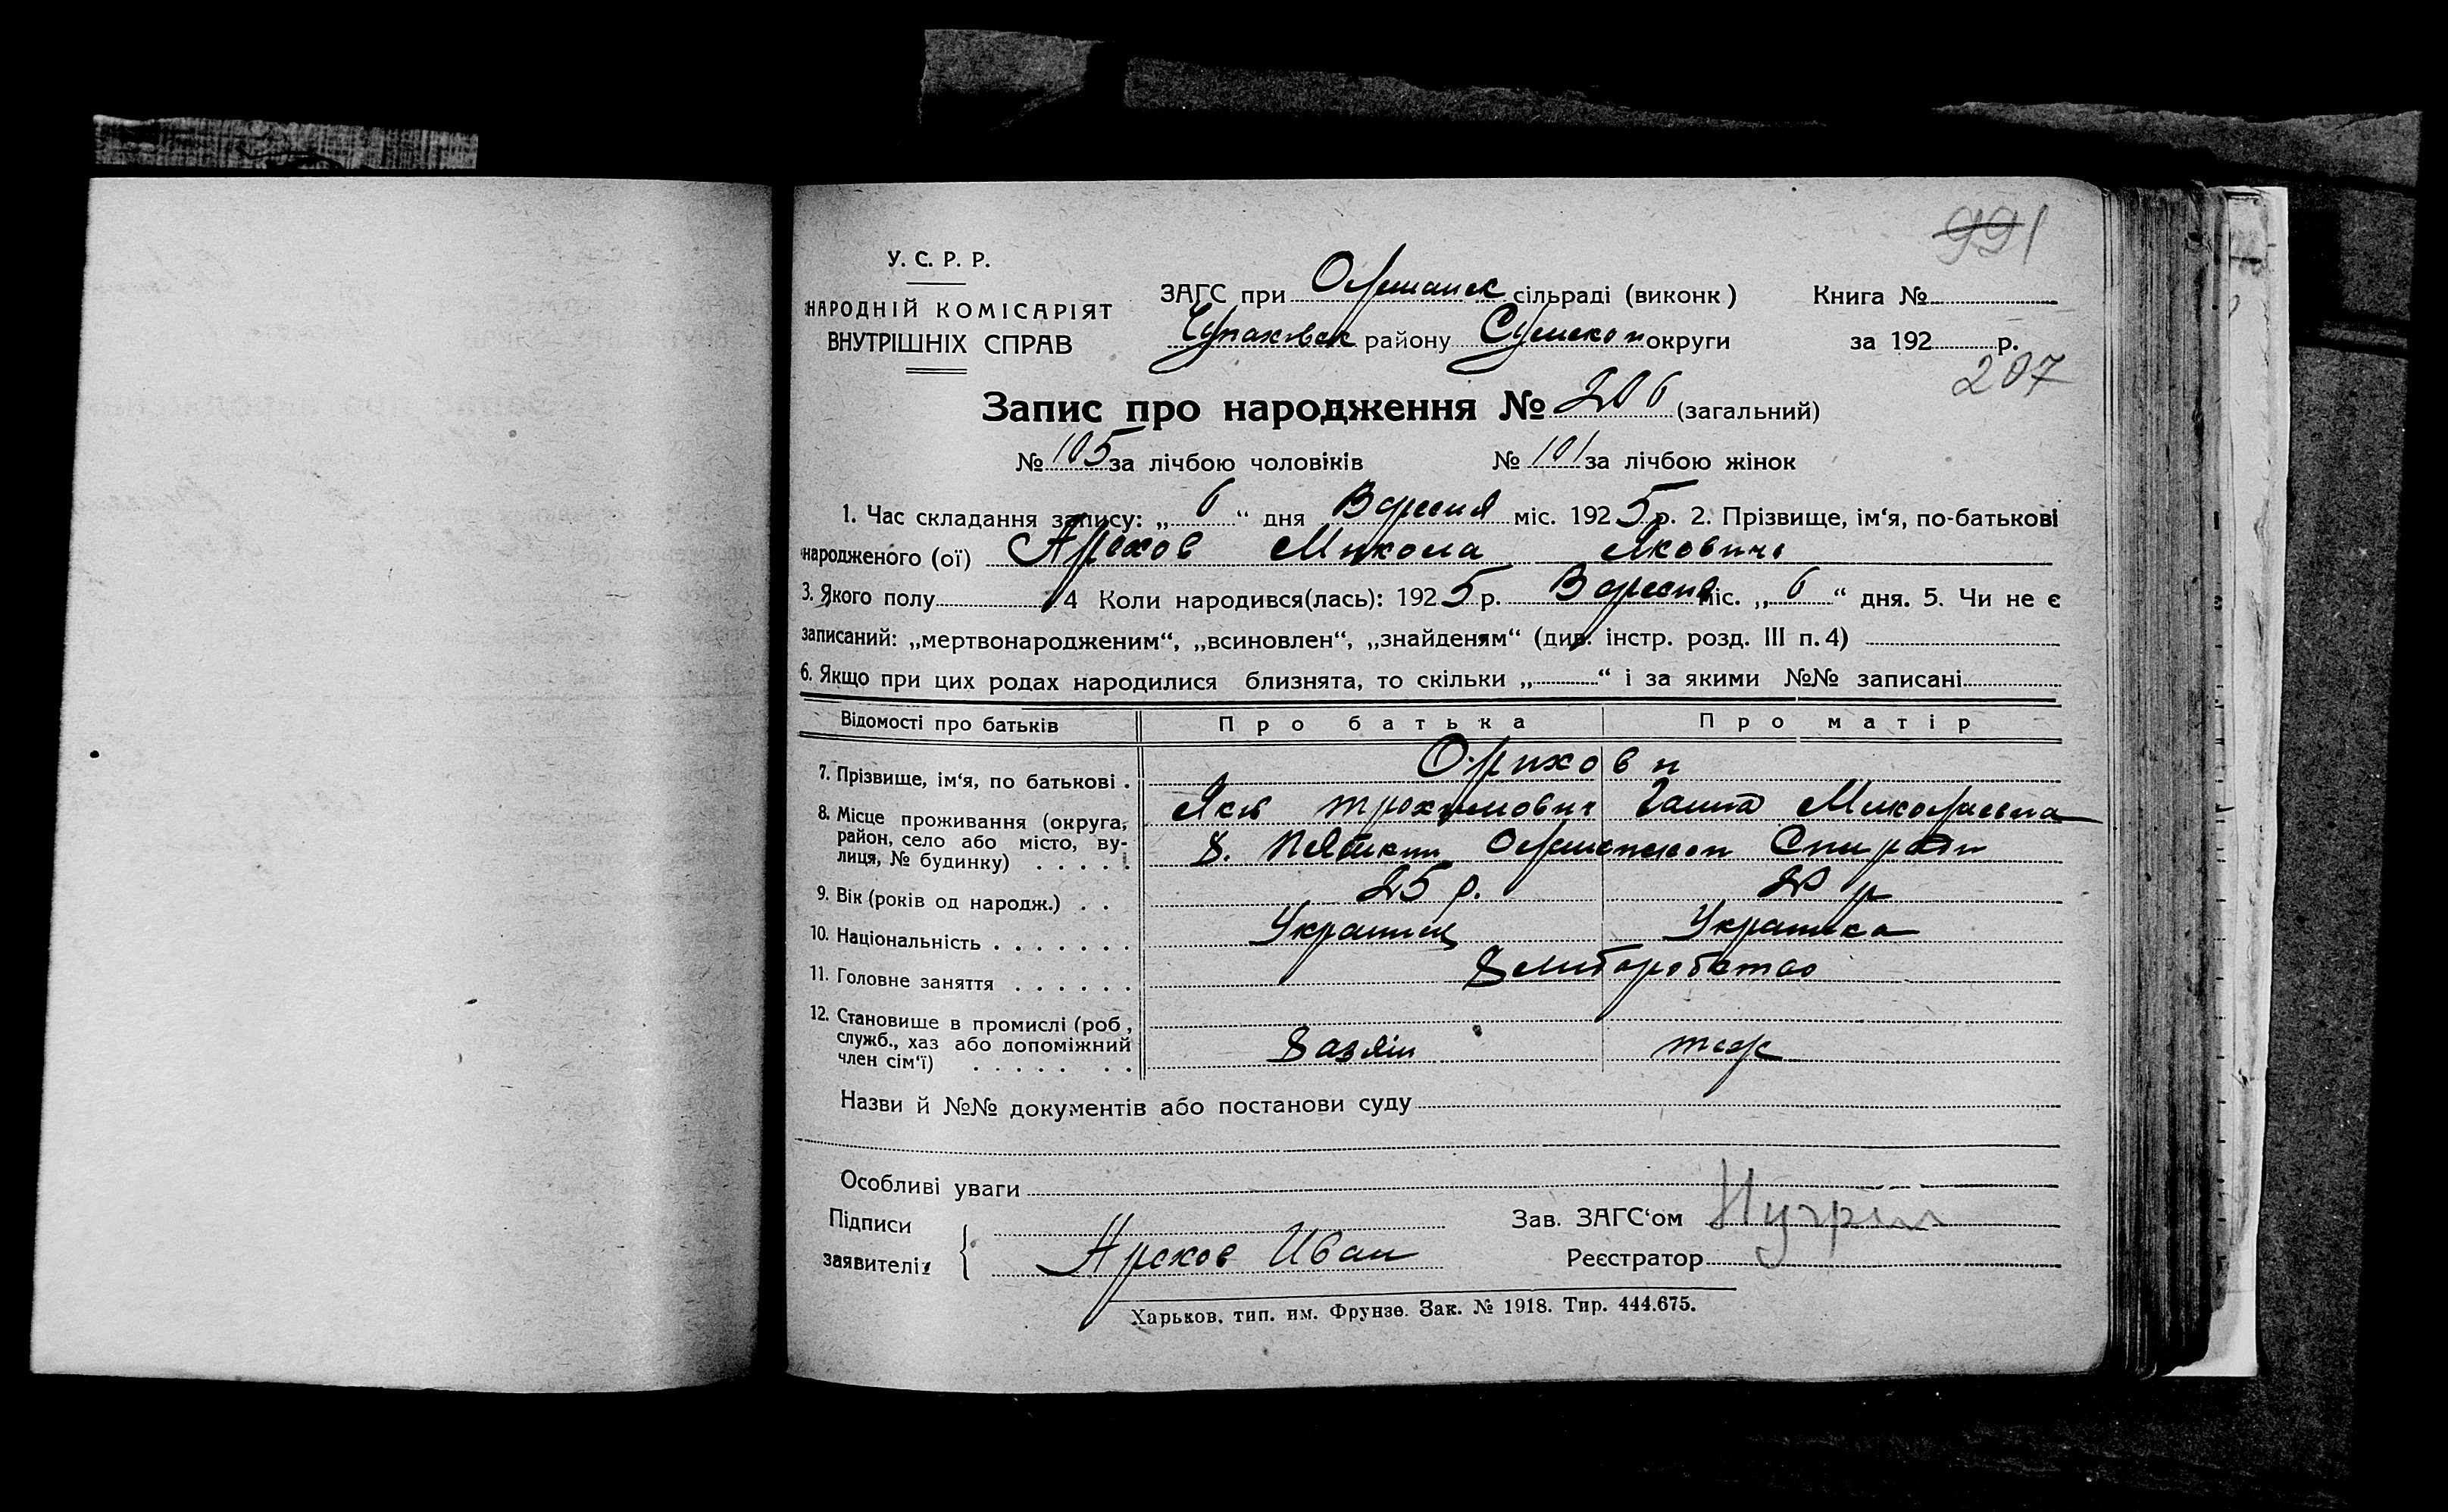 991
У. С. Р. Р.
НАРОДНІЙ КОМІСАРІЯТ
ВНУТРІШНІХ СПРАВ
ЗАГС при сільраді (виконк) Книга №
Чупахівск району Сумськои округи за 192 р.
207
Запис про народження № 206 (загальний)
№ 105 за лічбою чоловіків № 101 за лічбою жінок
1. Час складання запису: „ 6 “ дня Вересня міс. 1925 р. 2. Прізвище, ім‘я, по-батькові
народженого (ої) Арехов Микола Якович
3. Якого полу 4 Коли народився(лась): 1925 р. Вересня міс. „ 6 “ дня. 5. Чи не є
записаний: „мертвонародженим“, „всиновлен“, „знайденям“ (див. інстр. розд. III п. 4)
6. Якщо при цих родах народилися близнята, то скільки „ “ і за якими №№ записані
Відомості про батьків Про батька Про матір
7. Прізвище, ім‘я, по батькові . Орихови
Яків Трохимович Миколаевна
8. Місце проживання (округа,
район, село або місто, ву-
лиця, № будинку) . . . . .
9. Вік (років од народж.) . . 25 р. 20 р
10. Національність . . . . . . . Украинец Украинка
11. Головне заняття . . . . . .
12. Становище в промислі (роб,
служб., хаз або допоміжний
член сім‘ї) . . . . . . . Хазяін тож
Назви й №№ документів або постанови суду
Особливі уваги
Підписи
заявителів Арехов Иван
Зав. ЗАГС‘ом
Реєстратор
Харьков. тип. им. Фрунзе. Зак. № 1918. Тир. 444.675.